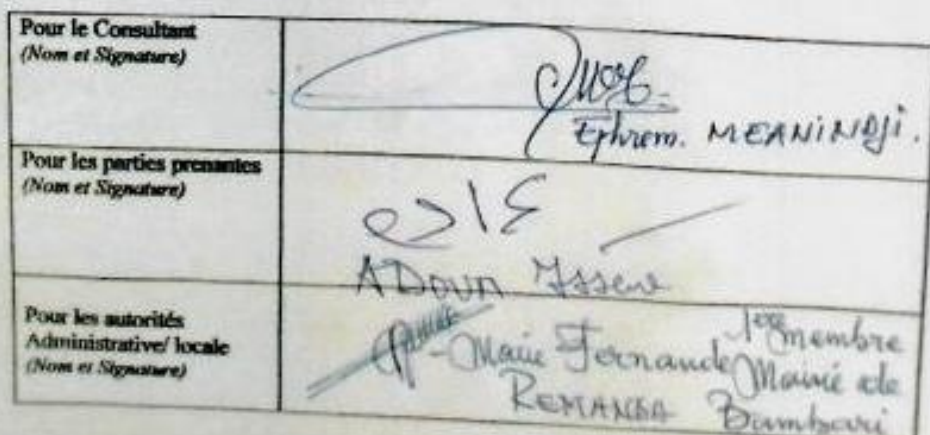 Pour le Consultant
(Nom et Signature)
Ephrem. MEANINDJI.
Pour les parties prenantes
(Nom et Signature)
ADOUM Issene
Pour les autorités
Administrative/ locale
(Nom et Signature)
Marie Fernande
REMANDA
membre
Mairie de
Bambari